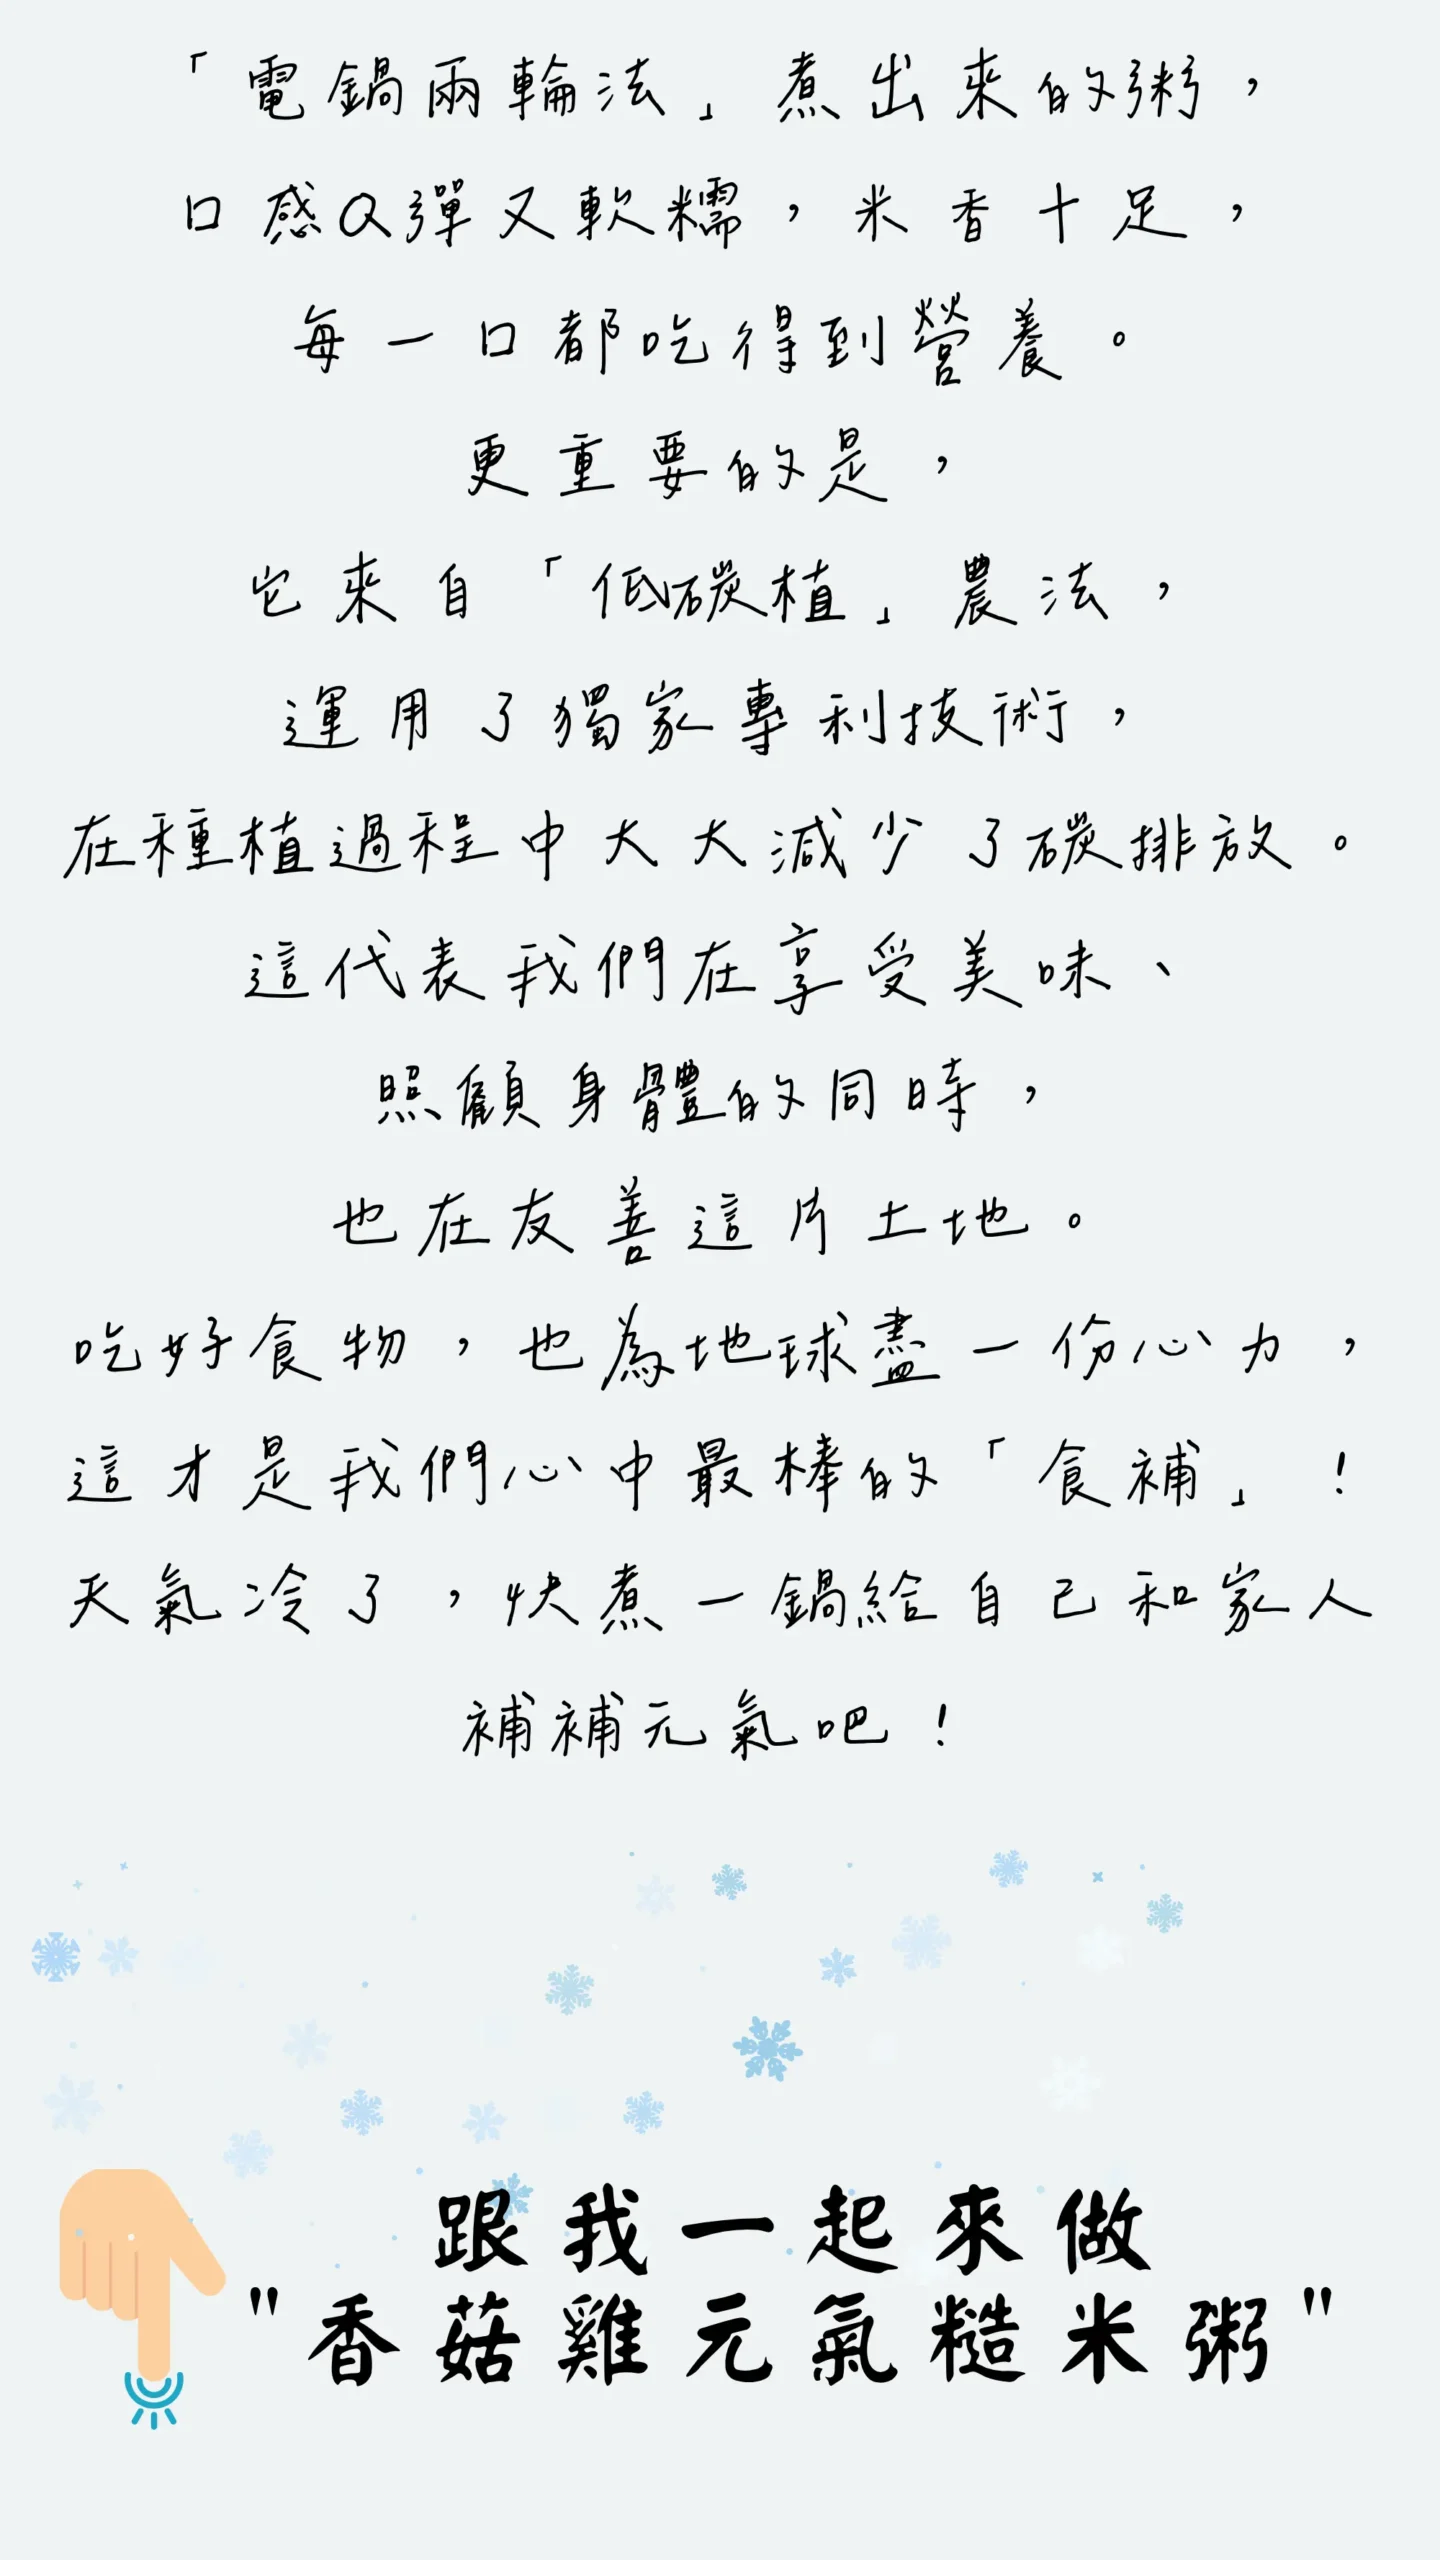 「電鍋兩輪法」煮出來的粥，
口感Q彈又軟糯，米香十足，
每一口都吃得到營養。
更重要的是，
它來自「低碳植」農法，
運用了獨家專利技術，
在種植過程中大大減少了碳排放。
這代表我們在享受美味、
照顧身體的同時，
也在友善這片土地。
吃好食物，也為地球盡一份心力，
這才是我們心中最棒的「食補」！
天氣冷了，快煮一鍋給自己和家人
補補元氣吧！
跟我一起來做
"香菇雞元氣糙米粥"